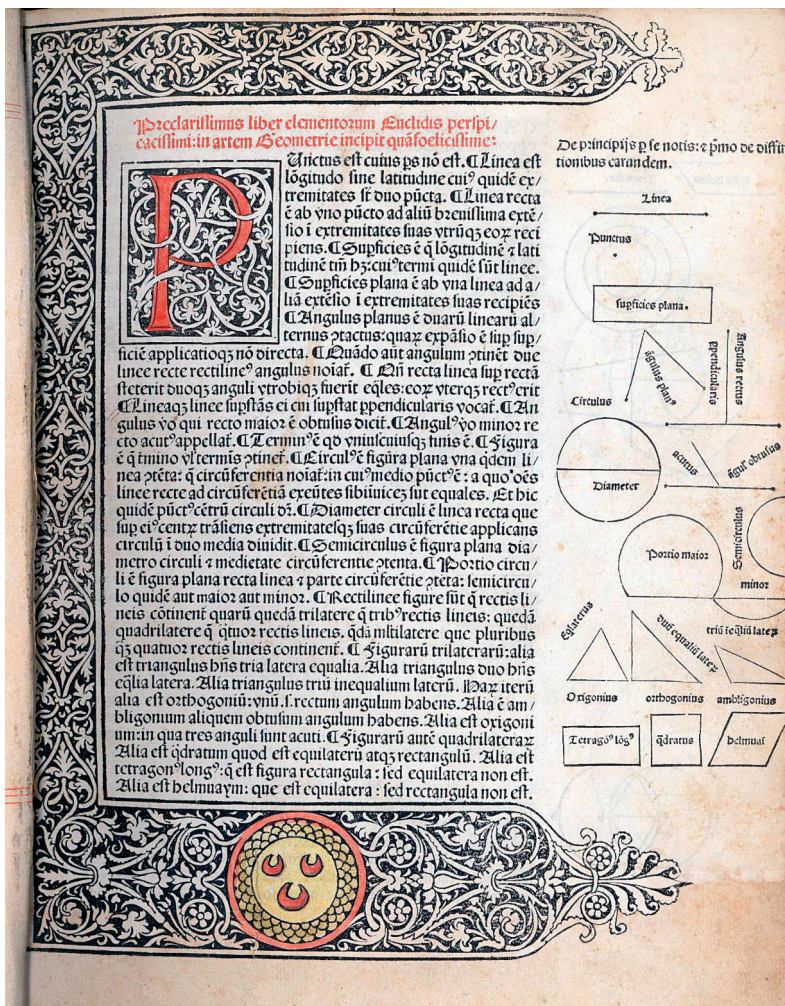 Preclarissimus liber elementorum Euclidis perspi/
cacissimi: in artem Geometrie incipit quãfoelicissime:
Punctus est cuius ps nõ est. ¶ Linea est
lõgitudo sine latitudine cuiꝰ quidẽ ex/
tremitates st̃ duo pũcta. ¶ Linea recta
ẽ ab vno pũcto ad aliũ breuissima extẽ/
sio ĩ extremitates suas vtrũqꝫ eoꝝ reci
piens. ¶ Supficies ẽ q̃ lõgitudinẽ ⁊ lati
tudinẽ tm̃ hꝫ: cuiꝰ termi quidẽ sũt linee.
¶ Supficies plana ẽ ab vna linea ad a/
liã extẽsio ĩ extremitates suas recipiẽs
¶ Angulus planus ẽ duarũ linearũ al/
ternus ꝯtactus: quaꝝ expãsio ẽ sup sup/
ficiẽ applicatioqꝫ nõ directa. ¶ Quãdo aũt angulum ꝯtinẽt due
linee recte rectilineꝰ angulus noiat̃. ¶ Qñ recta linea sup rectã
steterit duoqꝫ anguli vtrobiqꝫ fuerit eq̃les: eoꝝ vterqꝫ rectꝰ erit
¶ Lineaqꝫ linee supstãs ei cui supstat ppendicularis vocat̃. ¶ An
gulus vo qui recto maior ẽ obtusus dicit̃. ¶ Angulꝰ vo minor re
cto acutꝰ appellat̃. ¶ Terminꝰ ẽ qd vniuscuiusqꝫ finis ẽ. ¶ Figura
ẽ q̃ tmino vl terminis ꝯtinet̃. ¶ Circulꝰ ẽ figura plana vna q̃dem li/
nea ꝯtẽta: q̃ circũferentia noiat̃: in cuiꝰ medio pũctꝰ ẽ: a quo oẽs
linee recte ad circũferẽtiã exeũtes sibiinuiceꝫ sut equales. Et hic
quidẽ pũctꝰ cẽtrũ circuli dr̃. ¶ Diameter circuli ẽ linea recta que
sup eiꝰ centꝝ trãsiens extremitatesqꝫ suas circũferẽtie applicans
circulũ ĩ duo media diuidit. ¶ Semicirculus ẽ figura plana dia/
metro circuli ⁊ medietate circũferentie ꝯtenta. ¶ Portio circu/
li ẽ figura plana recta linea ⁊ parte circũferẽtie ꝯtẽta: semicircu/
lo quidẽ aut maior aut minor. ¶ Rectilinee figure sũt q̃ rectis li/
neis cõtinent̃ quarũ quedã trilatere q̃ tribꝰ rectis lineis: quedã
quadrilatere q̃ q̃tuor rectis lineis. q̃dã mltilatere que pluribus
qꝫ quatuor rectis lineis continent̃. ¶ Figurarũ trilaterarũ: alia
est triangulus hñs tria latera equalia. Alia triangulus duo hñs
eq̃lia latera. Alia triangulus triũ inequalium laterũ. Haꝝ iterũ
alia est orthogoniũ: vnũ .s. rectum angulum habens. Alia ẽ am/
bligonium aliquem obtusum angulum habens. Alia est oxigoni
um: in qua tres anguli sunt acuti. ¶ Figurarũ autẽ quadrilateraꝝ
Alia est q̃dratum quod est equilaterũ atqꝫ rectangulũ. Alia est
tetragonꝰ longꝰ: q̃ est figura rectangula: sed equilatera non est.
Alia est helmuaym: que est equilatera: sed rectangula non est.
De principijs p se notis: ⁊ pmo de diffini
tionibus earundem.
Linea
Punctus
supficies plana.
ãgulus planꝰ
ppendicularis
Angulus rectus
Circulus
Diameter
acutus
ãgulꝰ obtusus
Portio maior
Semicirculus
minor
Eqlaterus
duũ equaliũ lateꝝ
triũ ieq̃liũ lateꝝ
Oxigonius
orthogonius
ambligonius
Tetragõꝰ lõgꝰ
q̃dratus
helmuai